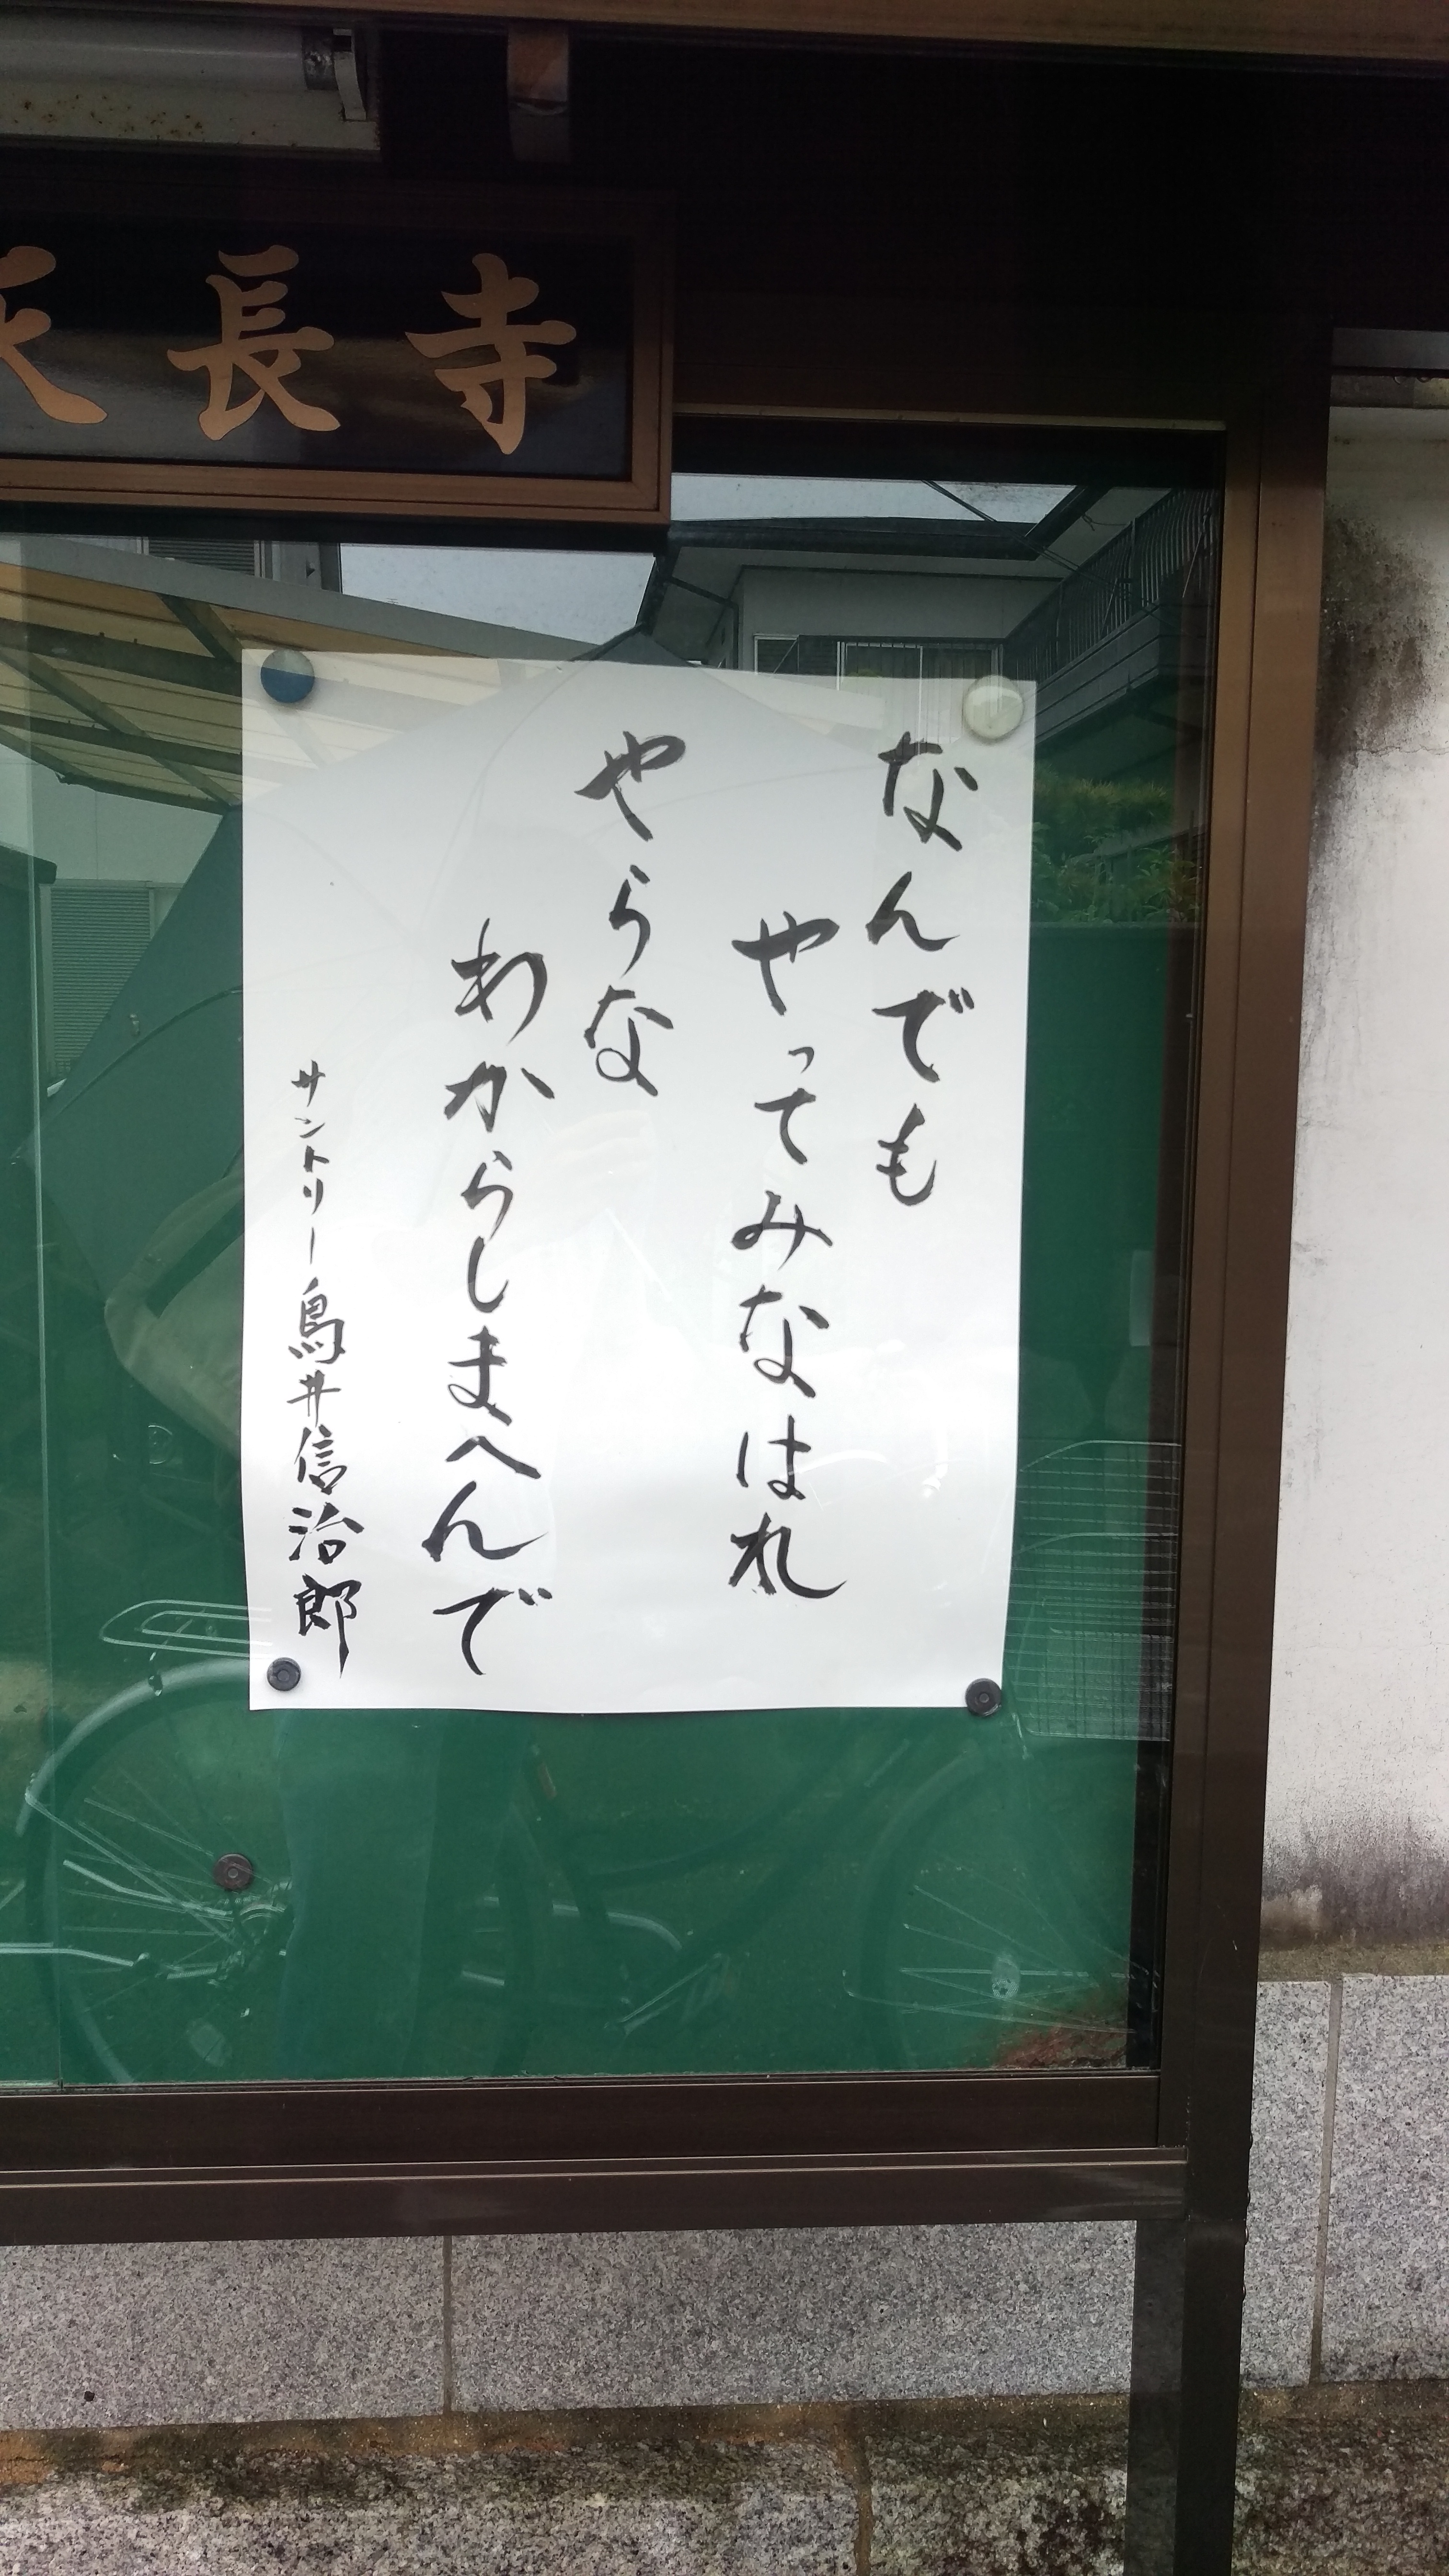 長寺
なんでも
やってみなはれ
やらな
わからしまへんで
サントリー鳥井信治郎